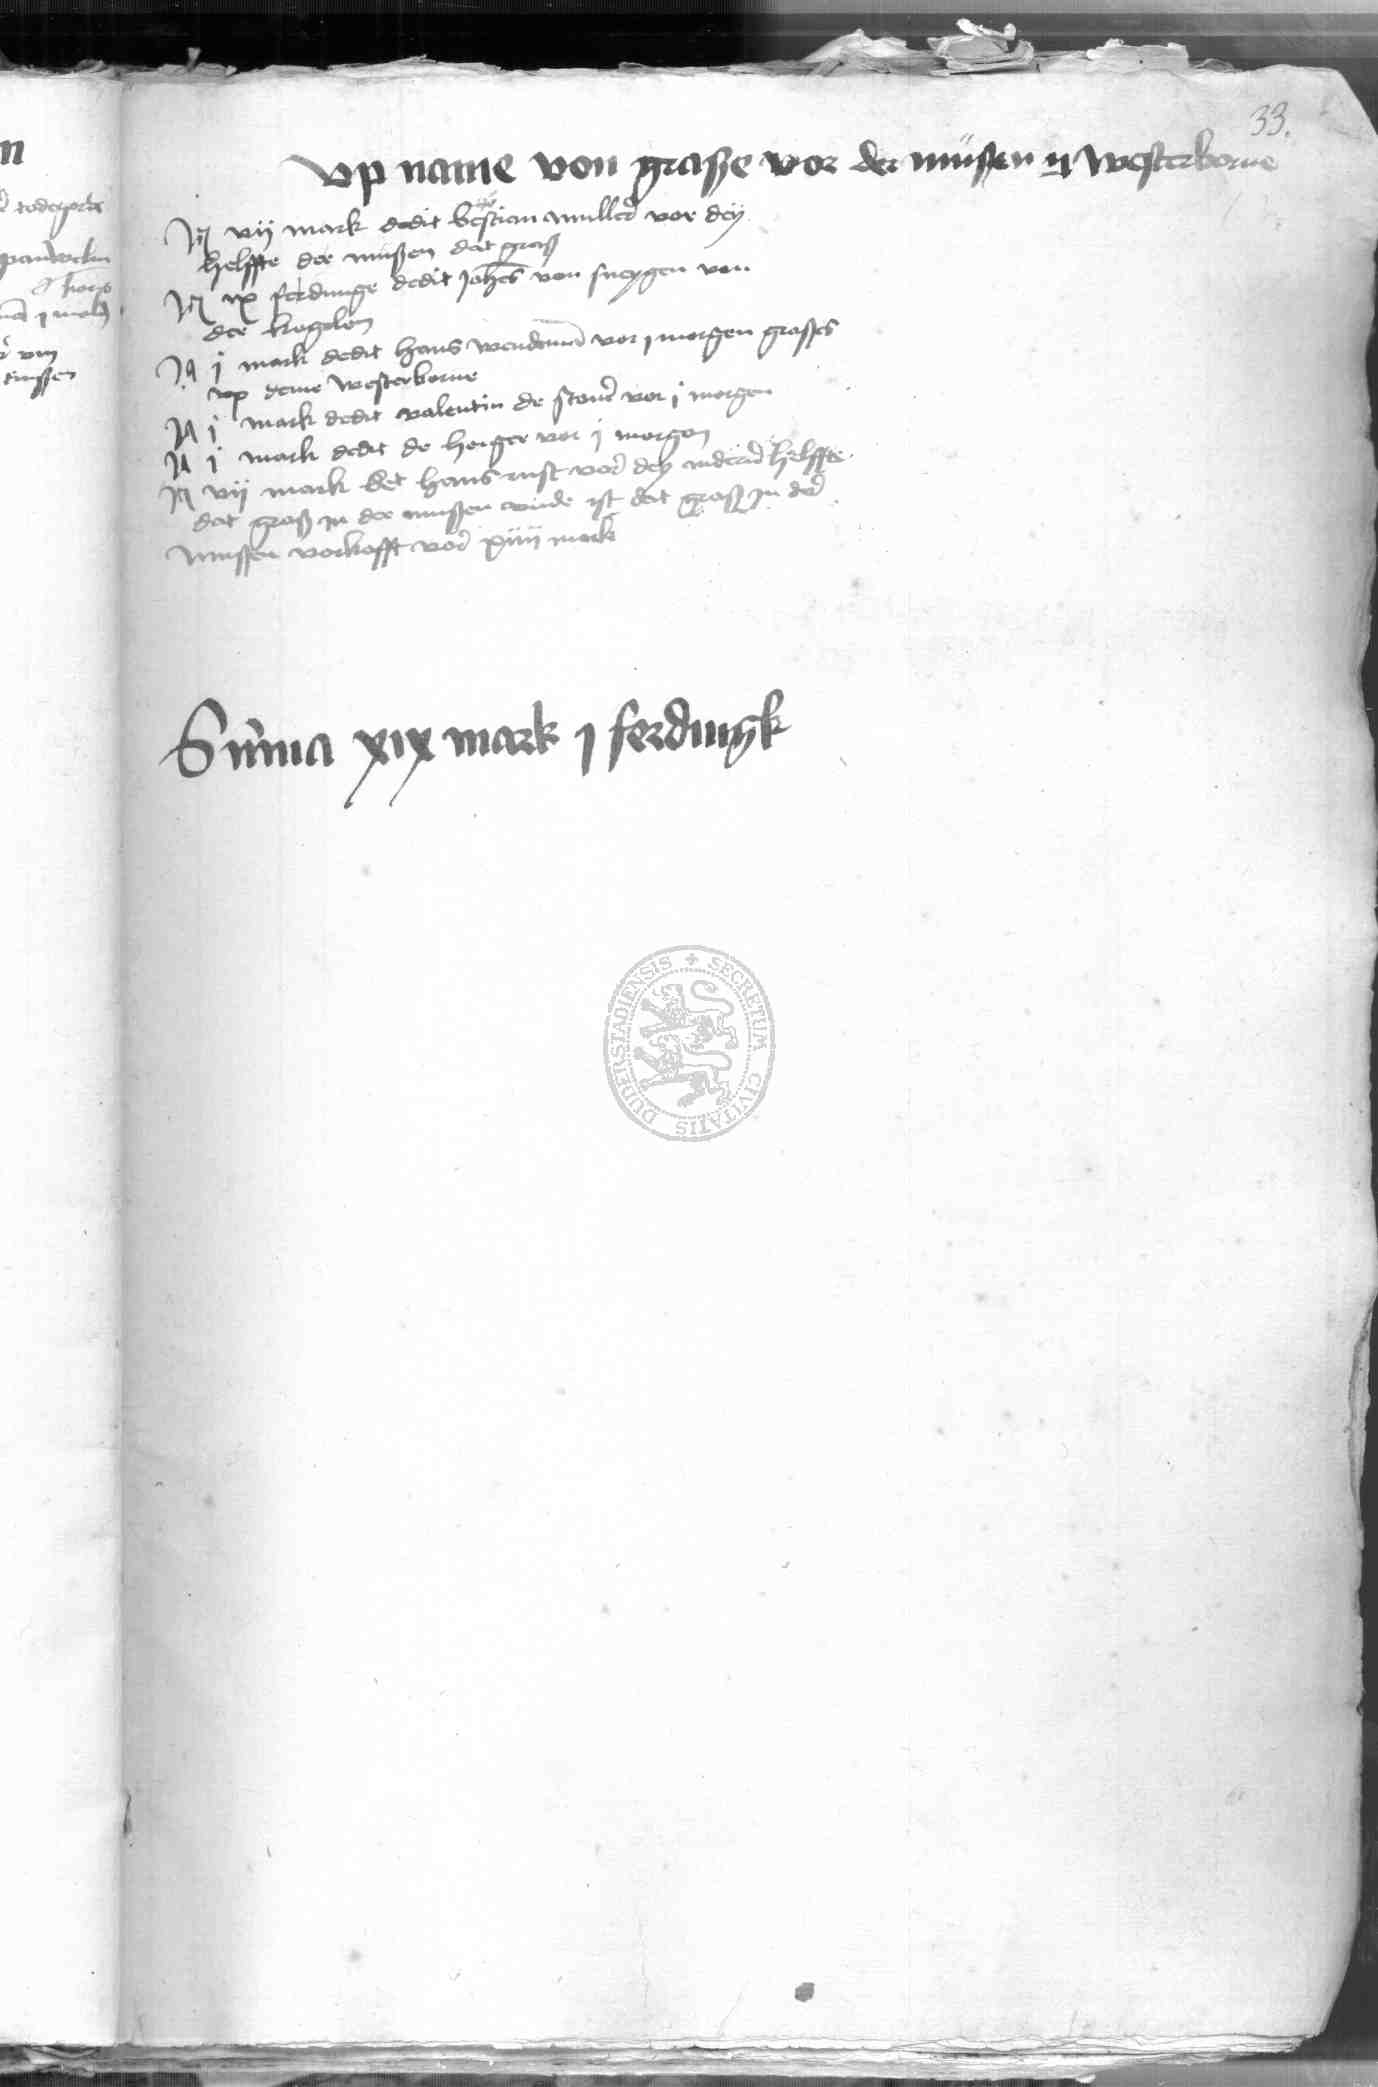 33.
vp name von grasze vor der müssen ij westerborne
It vij mark dedit bestian muller vor dey
helffte der mussen dat grasz
It ix ferdinge dedit Johes von sneygen von
der kogelen
It j mark dedit hans vor j morgen grasses
vp deme westerborne
It j mark dedit valentin de vor j morgen
It j mark dedit de hoiger vor j morgen
It vij mark det hans rust vor dey anderen helffte
dat grasz in der mussen vnde ist dat grasz in der
mussen vorkofft vor xiiij mark
Summa xix mark j ferdingk
SECRETUM CIVITATIS DUDERSTADIENSIS